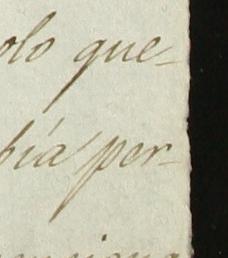 olo que-
bía per-